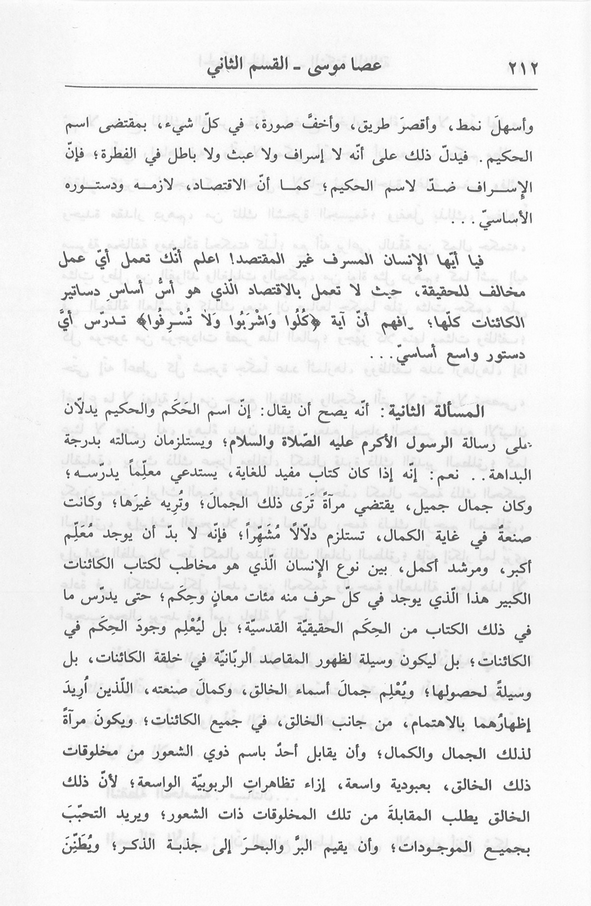 ٢١٢ عصا موسى - القسم الثاني
وأسهلَ نمط، وأقصرَ طريق، وأخفَّ صورة، في كلّ شيء، بمقتضى اسم
الحكيم. فيدلّ ذلك على أنّه لا إسراف ولا عبث ولا باطل في الفطرة؛ فإنّ
الإسراف ضدّ لاسم الحكيم؛ كما أنّ الاقتصاد، لازمه ودستوره
الأساسيّ...
فيا أيّها الإنسان المسرف غير المقتصد! اعلم أنّك تعمل أيّ عمل
مخالف للحقيقة، حيث لا تعمل بالاقتصاد الّذي هو أسُّ أساسِ دساتير
الكائنات كلّها؛ ـ افهم أنّ آية ﴿كُلُوا وَاشْرَبُوا وَلَا تُسْرِفُوا﴾ تدرّس أيَّ
دستور واسع أساسيّ...
المسألة الثانية: أنّه يصح أن يقال: إنّ اسم الحَكَم والحكيم يدلّان
على رسالة الرسول الأكرم عليه الصّلاة والسلام؛ ويستلزمان رسالته بدرجة
البداهة.. نعم: إنّه إذا كان كتاب مفيد للغاية، يستدعي معلّماً يدرّسه؛
وكان جمال جميل، يقتضي مرآةً تَرَى ذلك الجمالَ؛ وتُريه غيرَها؛ وكانت
صنعةٌ في غاية الكمال، تستلزم دلّالاً مُشَهِّراً؛ فإنّه لا بدّ أن يوجد معَلِّم
أكبر، ومرشد أكمل، بين نوع الإنسان الّذي هو مخاطب لكتاب الكائنات
الكبير هذا الّذي يوجد في كلّ حرف منه مئات معانٍ وحِكَم؛ حتى يدرّس ما
في ذلك الكتاب من الحِكَم الحقيقيّة القدسيّة؛ بل ليُعْلِم وجودَ الحِكَم في
الكائنات؛ بل ليكون وسيلة لظهور المقاصد الربّانيّة في خلقة الكائنات، بل
وسيلةً لحصولها؛ ويُعْلِم جمالَ أسماء الخالق، وكمالَ صنعته، اللّذين اُرِيدَ
إظهارُهما بالاهتمام، من جانب الخالق، في جميع الكائنات؛ ويكونَ مرآةً
لذلك الجمال والكمال؛ وأن يقابل أحدٌ باسم ذوي الشعور من مخلوقات
ذلك الخالق، بعبودية واسعة، إزاء تظاهراتِ الربوبيّة الواسعة؛ لأنّ ذلك
الخالق يطلب المقابلةَ من تلك المخلوقات ذات الشعور؛ ويريد التحبّبَ
بجميع الموجودات؛ وأن يقيم البرَّ والبحرَ إلى جذبة الذكر؛ ويُطَنِّنَ